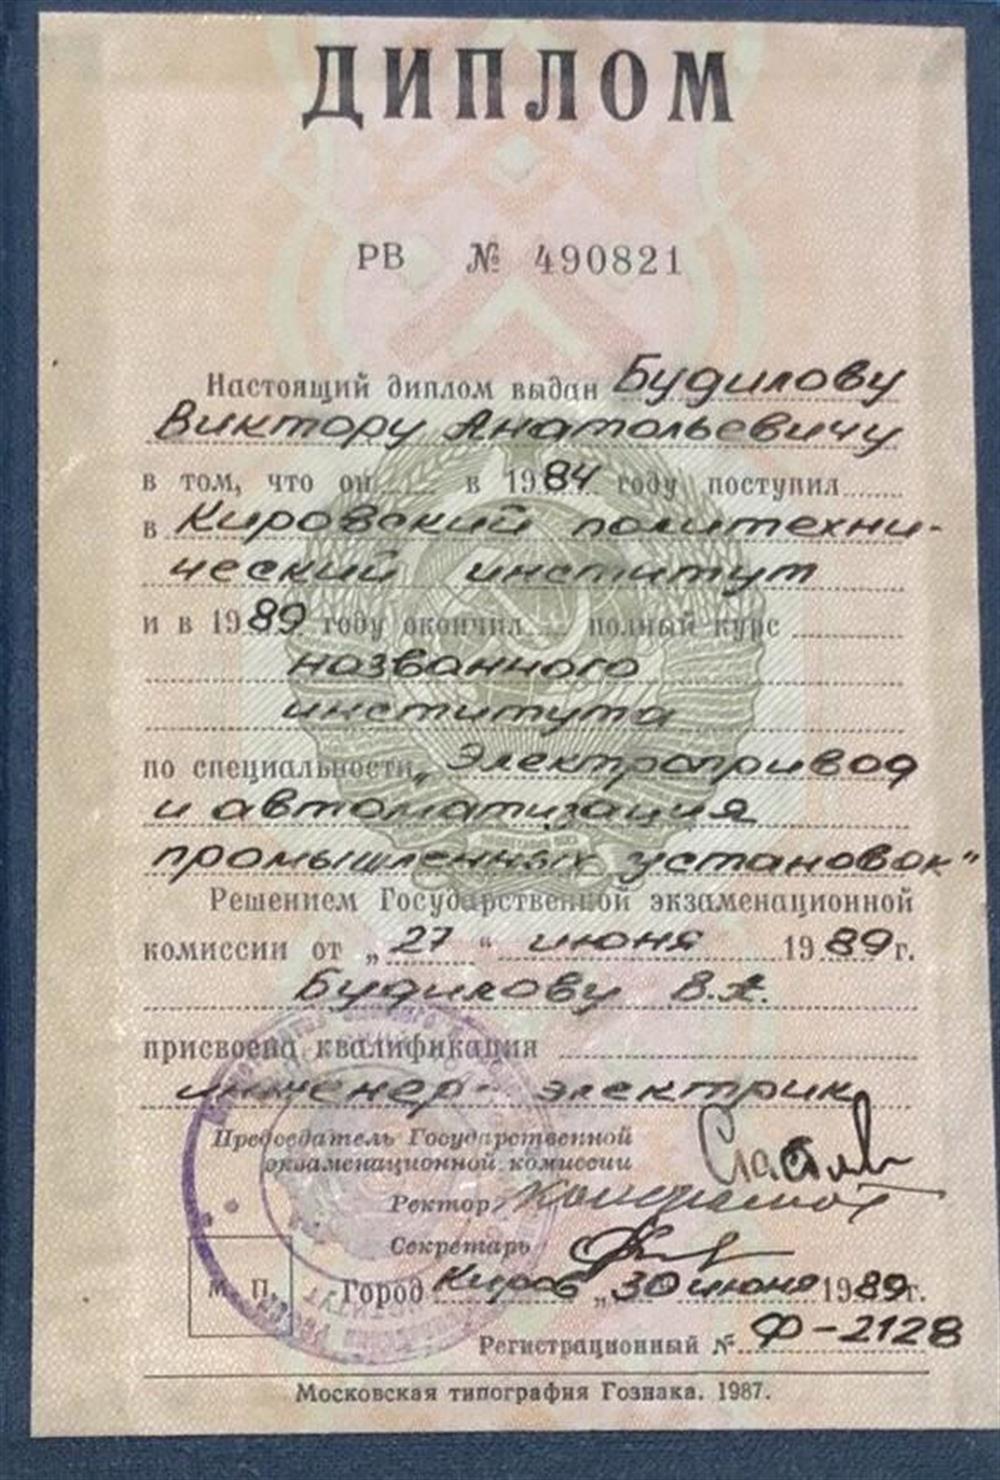 ДИПЛОМ
РВ № 490821
Настоящий диплом выдан Будилову
Виктору Анатольевичу
в том, что он в 1984 году поступил
в Кировский политехни-
ческий институт
и в 1989 году окончил полный курс
названного
института
по специальности „Электропривод
и автоматизация
промышленных установок"
Решением Государственной экзаменационной
комиссии от „27" июня 1989 г.
Будилову В.А.
присвоена квалификация
инженер-электрик
Председатель Государственной
экзаменационной комиссии
Ректор
Секретарь
М. П. Город Киров „30 июня 1989 г.
Регистрационный № Ф-2128
Московская типография Гознака. 1987.